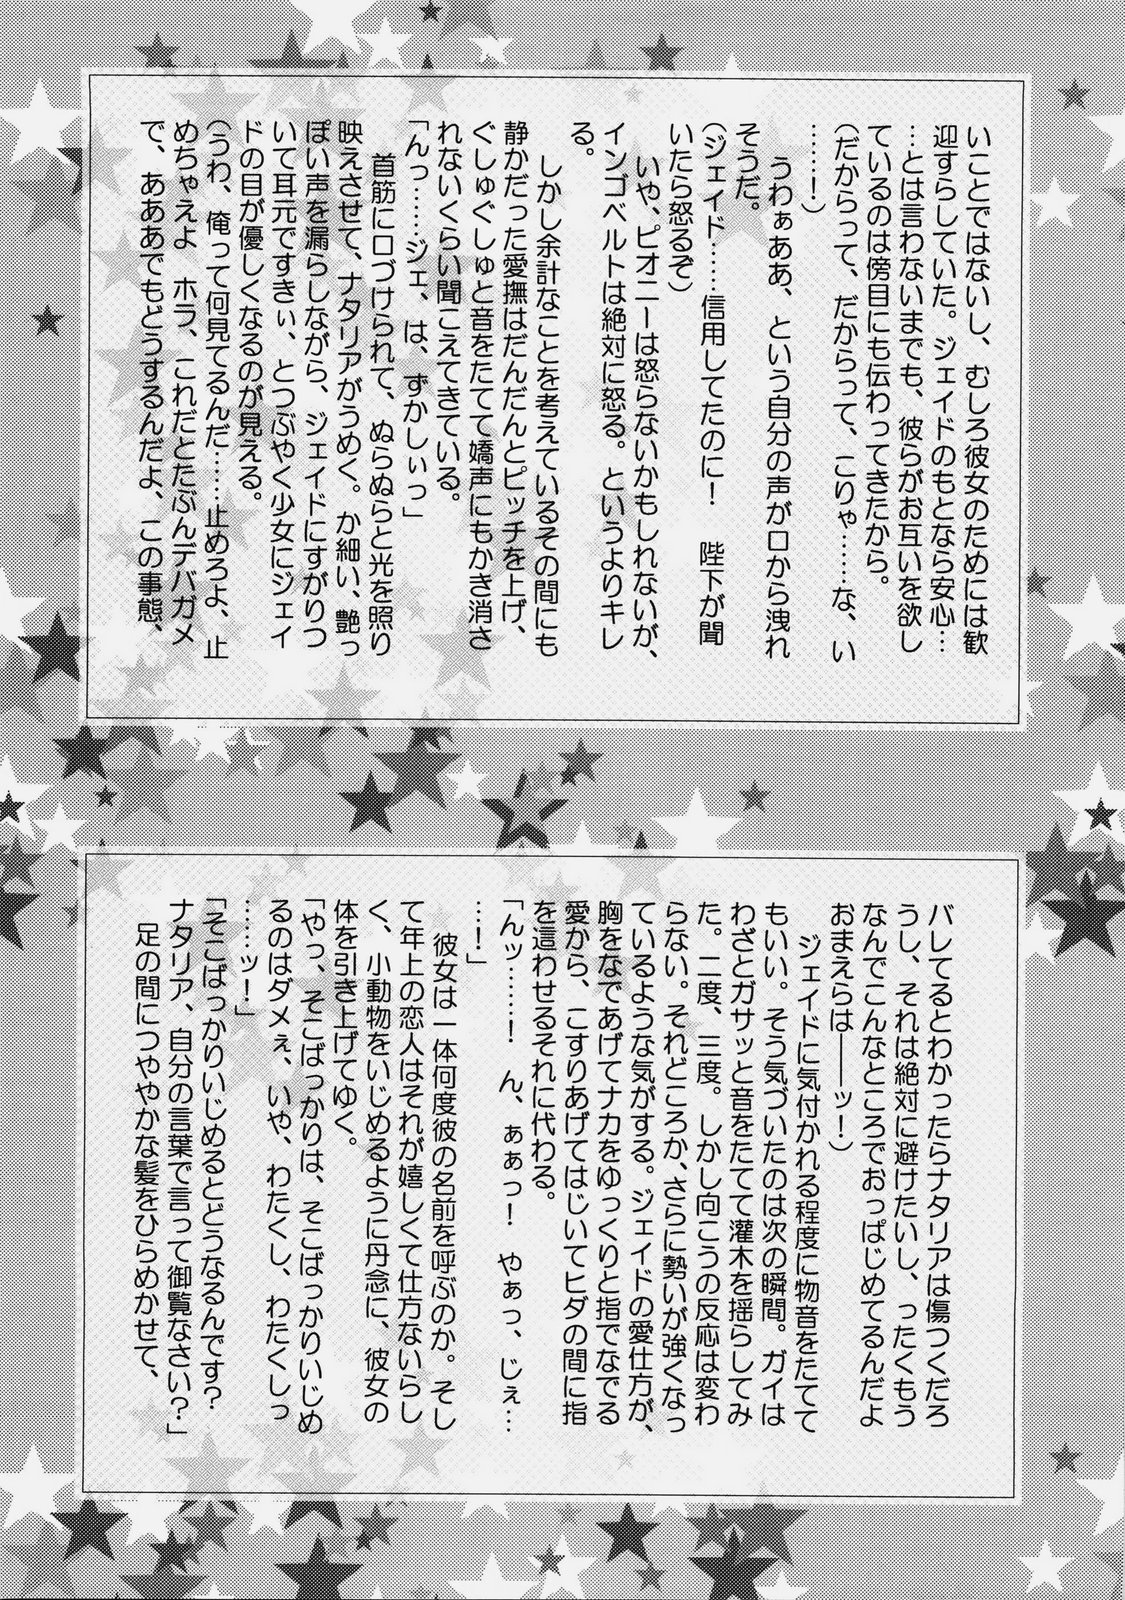 いことではないし、むしろ彼女のためには歓
迎すらしていた。ジェイドのもとなら安心…
…とは言わないまでも、彼らがお互いを欲し
ているのは傍目にも伝わってきたから。
（だからって、だからって、こりゃ……な、い
……！）
うわぁああ、という自分の声が口から洩れ
そうだ。
（ジェイド……信用してたのに！　陛下が聞
いたら怒るぞ）
いや、ピオニーは怒らないかもしれないが、
インゴベルトは絶対に怒る。というよりキレ
る。
しかし余計なことを考えているその間にも
静かだった愛撫はだんだんとピッチを上げ、
ぐしゅぐしゅと音をたてて嬌声にもかき消さ
れないくらい聞こえてきている。
「んっ……ジェ、は、ずかしぃっ」
首筋に口づけられて、ぬらぬらと光を照り
映えさせて、ナタリアがうめく。か細い、艶っ
ぽい声を漏らしながら、ジェイドにすがりつ
いて耳元ですきぃ、とつぶやく少女にジェイ
ドの目が優しくなるのが見える。
（うわ、俺って何見てるんだ……止めろよ、止
めちゃえよ　ホラ、これだとたぶんデバガメ
で、あああでもどうするんだよ、この事態、
バレてるとわかったらナタリアは傷つくだろ
うし、それは絶対に避けたいし、ったくもう
なんでこんなところでおっぱじめてるんだよ
おまえらは――ッ！）
ジェイドに気付かれる程度に物音をたてて
もいい。そう気づいたのは次の瞬間。ガイは
わざとガサッと音をたてて灌木を揺らしてみ
た。二度、三度。しかし向こうの反応は変わ
らない。それどころか、さらに勢いが強くなっ
ているような気がする。ジェイドの愛仕方が、
胸をなであげてナカをゆっくりと指でなでる
愛から、こすりあげてはじいてヒダの間に指
を這わせるそれに代わる。
「んッ……！　ん、ぁぁっ！　やぁっ、じぇ…
…！」
彼女は一体何度彼の名前を呼ぶのか。そし
て年上の恋人はそれが嬉しくて仕方ないらし
く、小動物をいじめるように丹念に、彼女の
体を引き上げてゆく。
「やっ、そこばっかりは、そこばっかりいじめ
るのはダメぇ、いや、わたくし、わたくしっ
……ッ！」
「そこばっかりいじめるとどうなるんです？
ナタリア、自分の言葉で言って御覧なさい？」
足の間につややかな髪をひらめかせて、